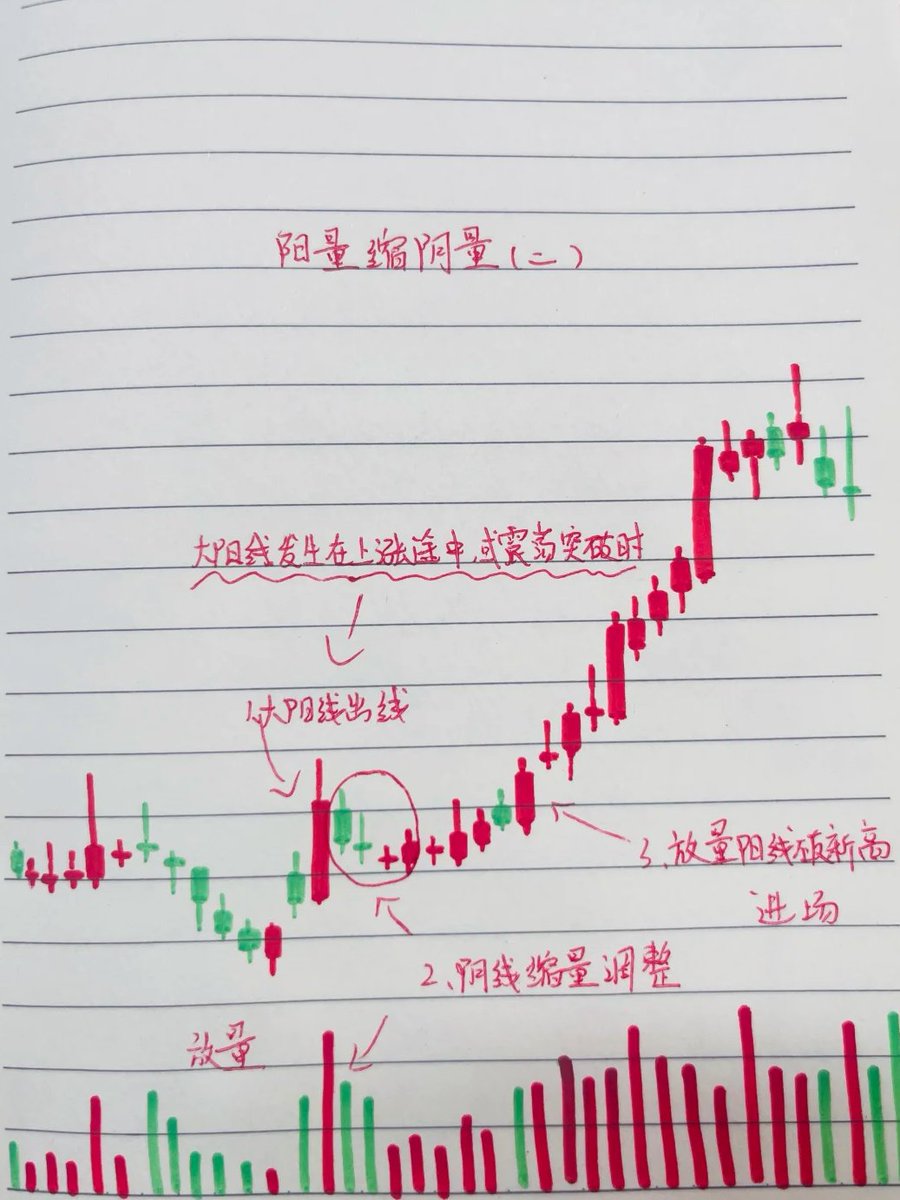 阳量缩阴量(二)
大阳线发生在上涨途中,或震荡突破时
1.大阳线出线
3.放量阳线破新高
进场
2、阴线缩量调整
放量